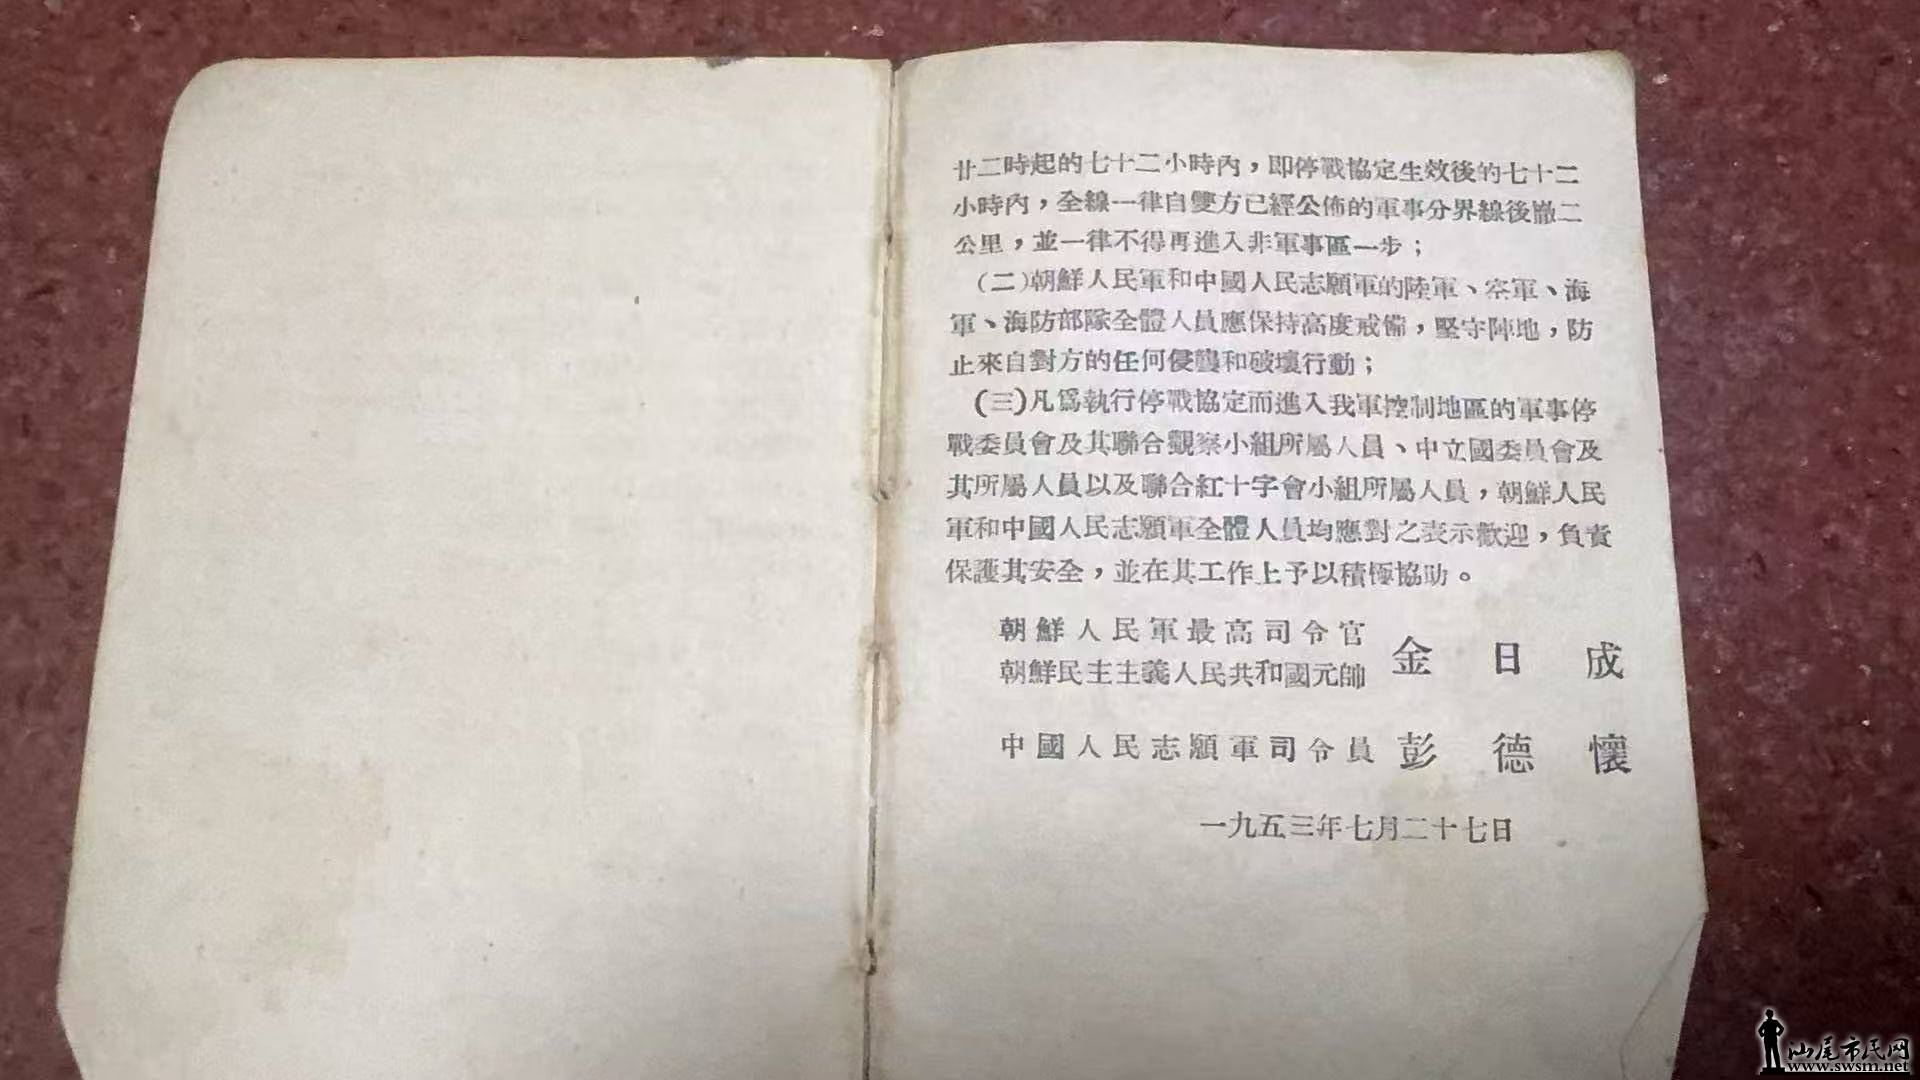 廿二時起的七十二小時內，即停戰協定生效後的七十二
小時內，全線一律自雙方已經公佈的軍事分界線後撤二
公里，並一律不得再進入非軍事區一步；
（二）朝鮮人民軍和中國人民志願軍的陸軍、空軍、海
軍、海防部隊全體人員應保持高度戒備，堅守陣地，防
止來自對方的任何侵襲和破壞行動；
（三）凡爲執行停戰協定而進入我軍控制地區的軍事停
戰委員會及其聯合觀察小組所屬人員、中立國委員會及
其所屬人員以及聯合紅十字會小組所屬人員，朝鮮人民
軍和中國人民志願軍全體人員均應對之表示歡迎，負責
保護其安全，並在其工作上予以積極協助。
朝鮮人民軍最高司令官
朝鮮民主主義人民共和國元帥 金日成
中國人民志願軍司令員 彭德懷
一九五三年七月二十七日
汕尾市民网
www.swsm.net